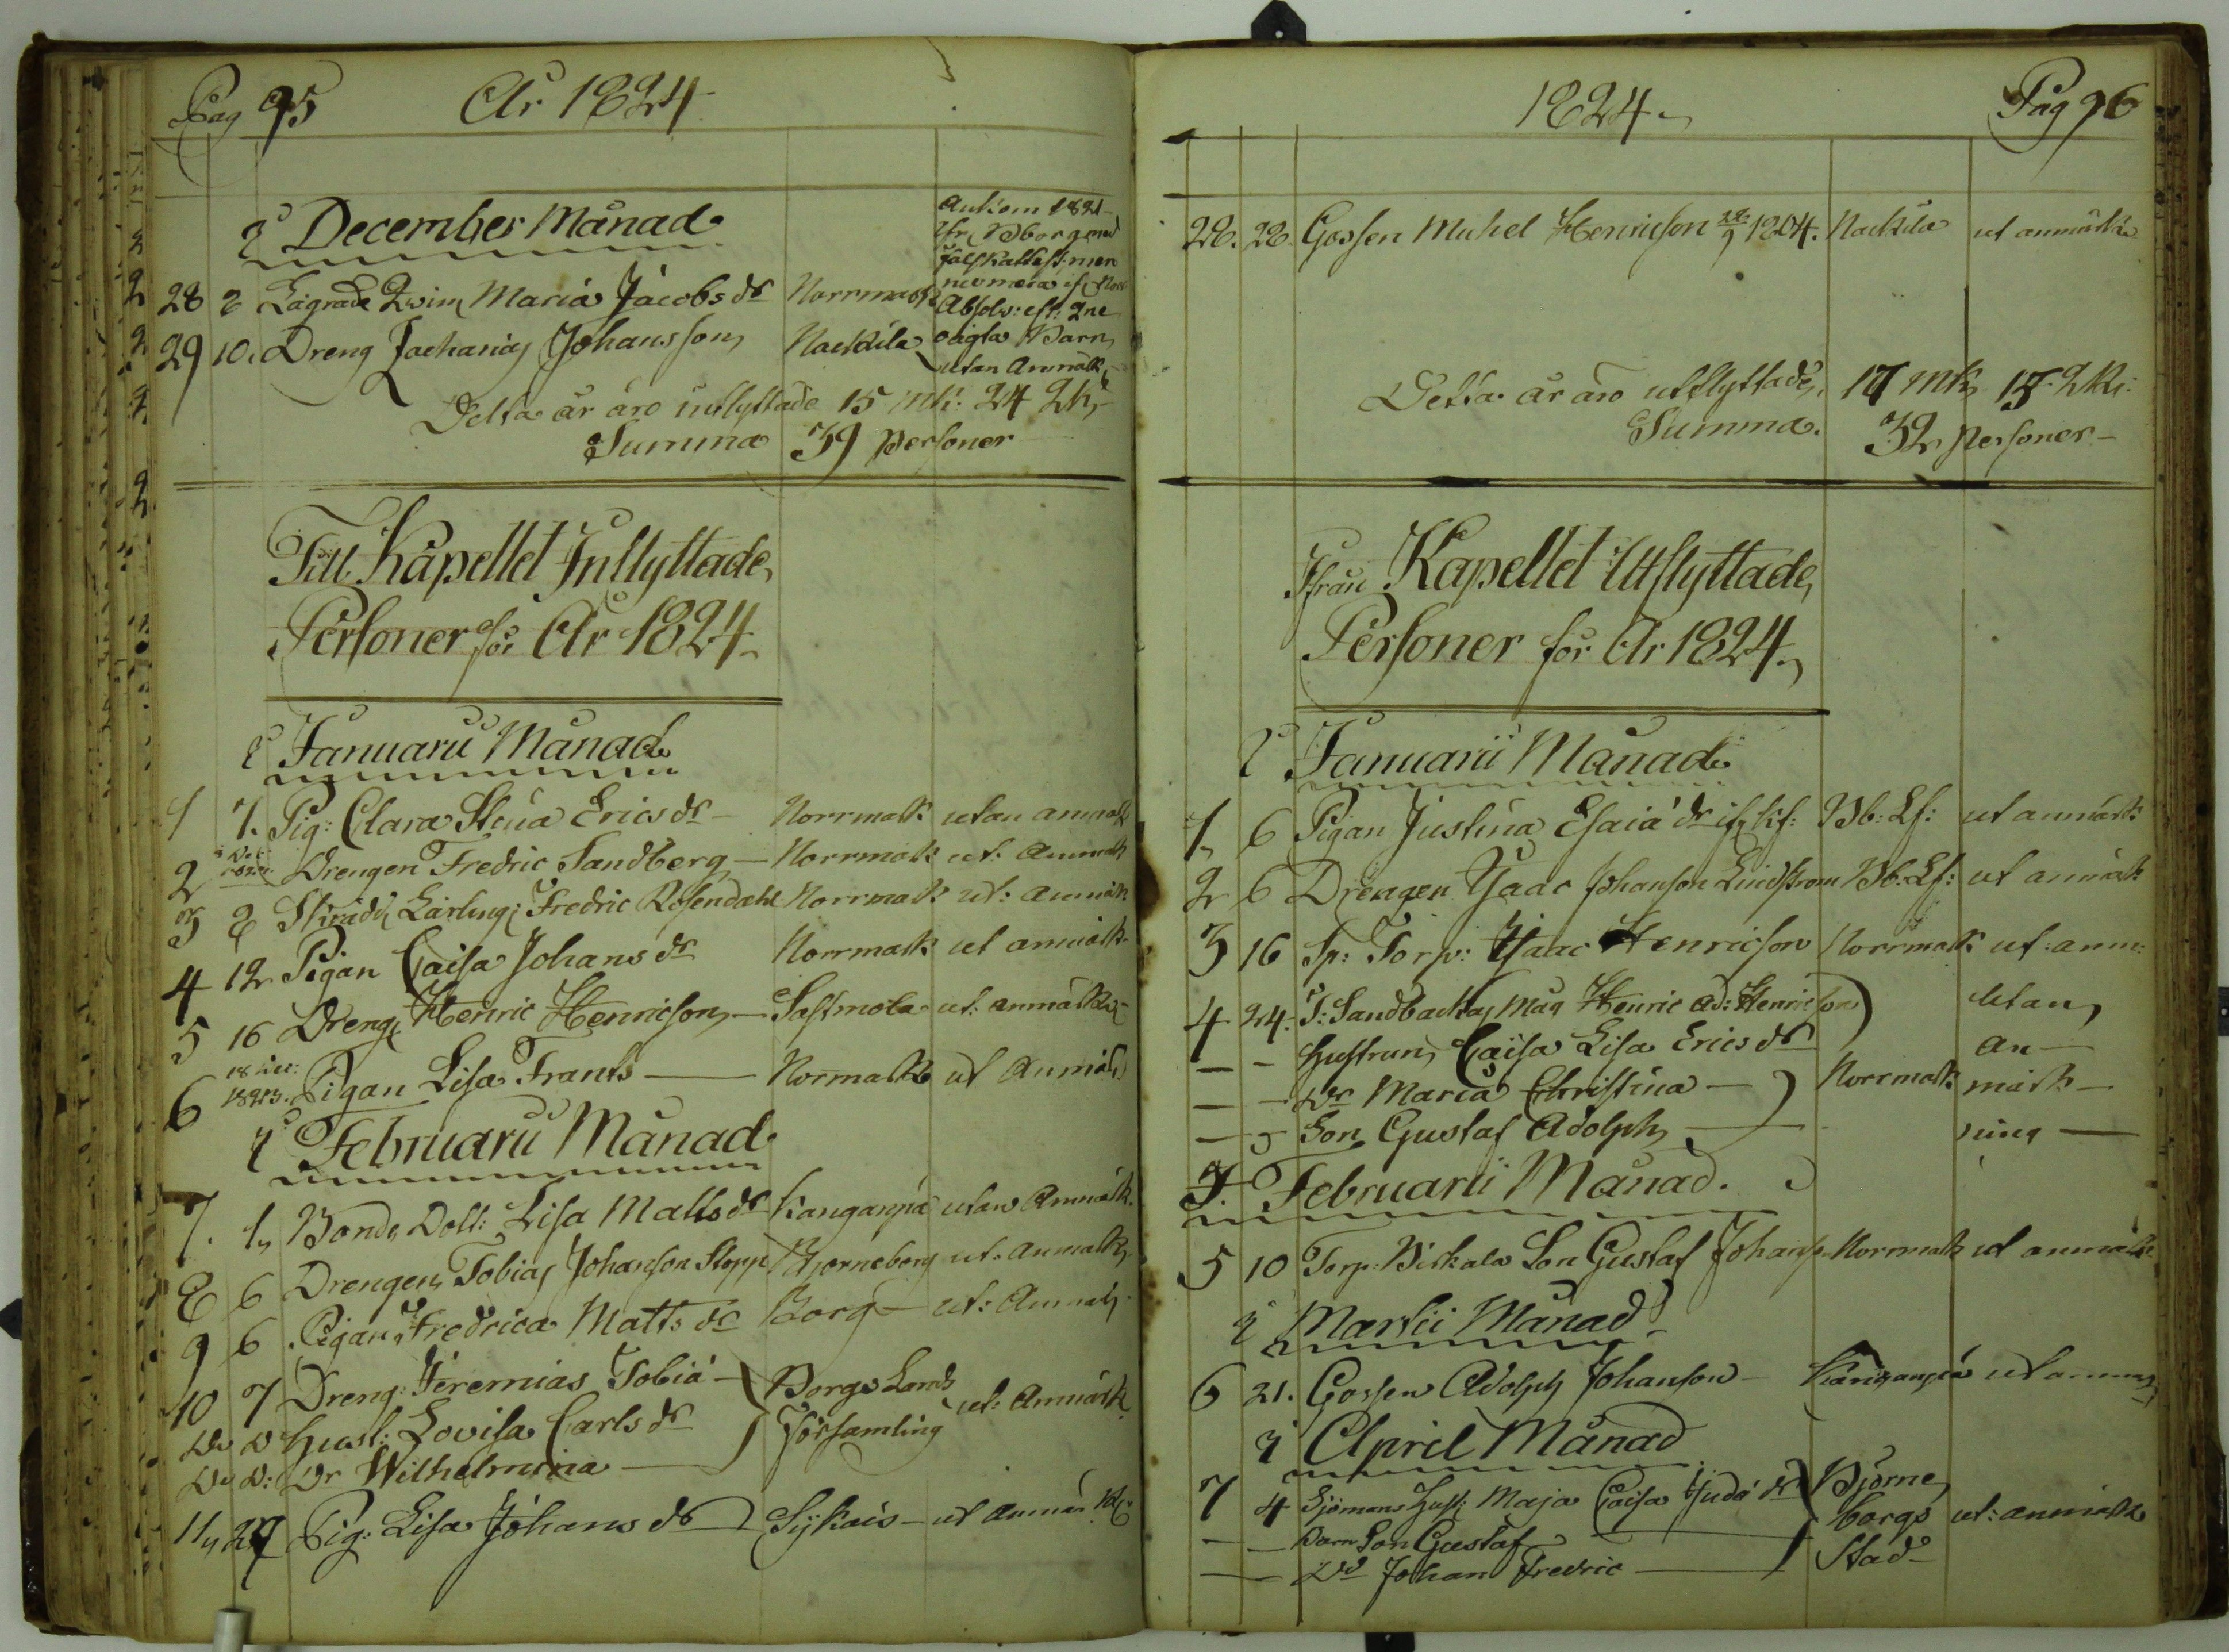 Pag 95 År 1824
i December Månad
Ankom 1821
ifr. Bborg med
men
Absolv: eft: 2ne
oägta Barn
utan Anmärk
28 8 Lägrade Qvin. Maria Jacobs dr Norrmark
29 10. Dreng Zacharias Johansson Nackila
Detta år äro inflyttade 15 Mk: 24 Qk:
Summa 39 Personer
Till Kapellet Inflyttade
Personer för År 1824
i Januarii Månad
1 7. Pig: Clara Stina Erics dr Norrmark utan anmärk
2 Drengen Fredric Sandberg Norrmark ut: Anmärk
3 8 Lärling: Fredric Rosendahl Norrmark ut: anmärk
4 12 Pigan Caisa Johans dr Norrmark ut anmärk
5 16 Dreng Henric Henricson Sastmola ut: anmärk
6 18 Dec: 1823. Pigan Lisa Frants Norrmark ut Anmärk
i Februarii Månad
7. 1 Bonde Dott: Lisa Matts dr Kangarpä utan Anmärk.
8 6 Drengen Tobias Johanson Stopp Bjorneborg ut: anmärk
9 6 Pigan Fredrica Matts dr Borg ut: Anmärk
10 7 Dreng: Jeremias Tobiæ Borgs Lands ut: Anmärk
Do D Hust: Lovisa Carls dr Församling
Do D: Dr Wilhelmina
11 27 Pig: Lisa Johans dr Sykais ut anmärk
1824 Pag 96
28. 28. Gossen Michel Henricson 1804. Nackila ut anmärk
Detta år äro utflyttade 17 Mk 15 Qk:
Summa. 32 Personer
Ifrån Kapellet Utflyttade
Personer för År 1824
i Januarii Månad
1 6 Pigan Justina Esaiæ dr Bb: Lf: ut anmärk
2 6 Drengen Isaac Johanson Lindstrom Bb: Lf: ut anmärk
3 16 Sp: Torp: Isaac Henricson Norrmark ut: anm:
4 24. T: Sandbacka Måg Henric Ad: Henricson Utan
— — Hustrun Caisa Lisa Erics dr an
— — Dr Maria Christina Norrmark märk
— — Son Gustaf Adolph ning
I. Februarii Månad.
5 10 Torp: Viskala Son Gustaf Johans Norrmark ut anmärk
i Martii Månad
6 21. Gossen Adolph Johanson Kangarpä ut anm
i April Månad
7 4 Sjömans Hust: Maja Caisa Judæ dr Bjorne
— — Barn Son Gustaf borgs ut: anmärk
— — Do Johan Fredric Stad